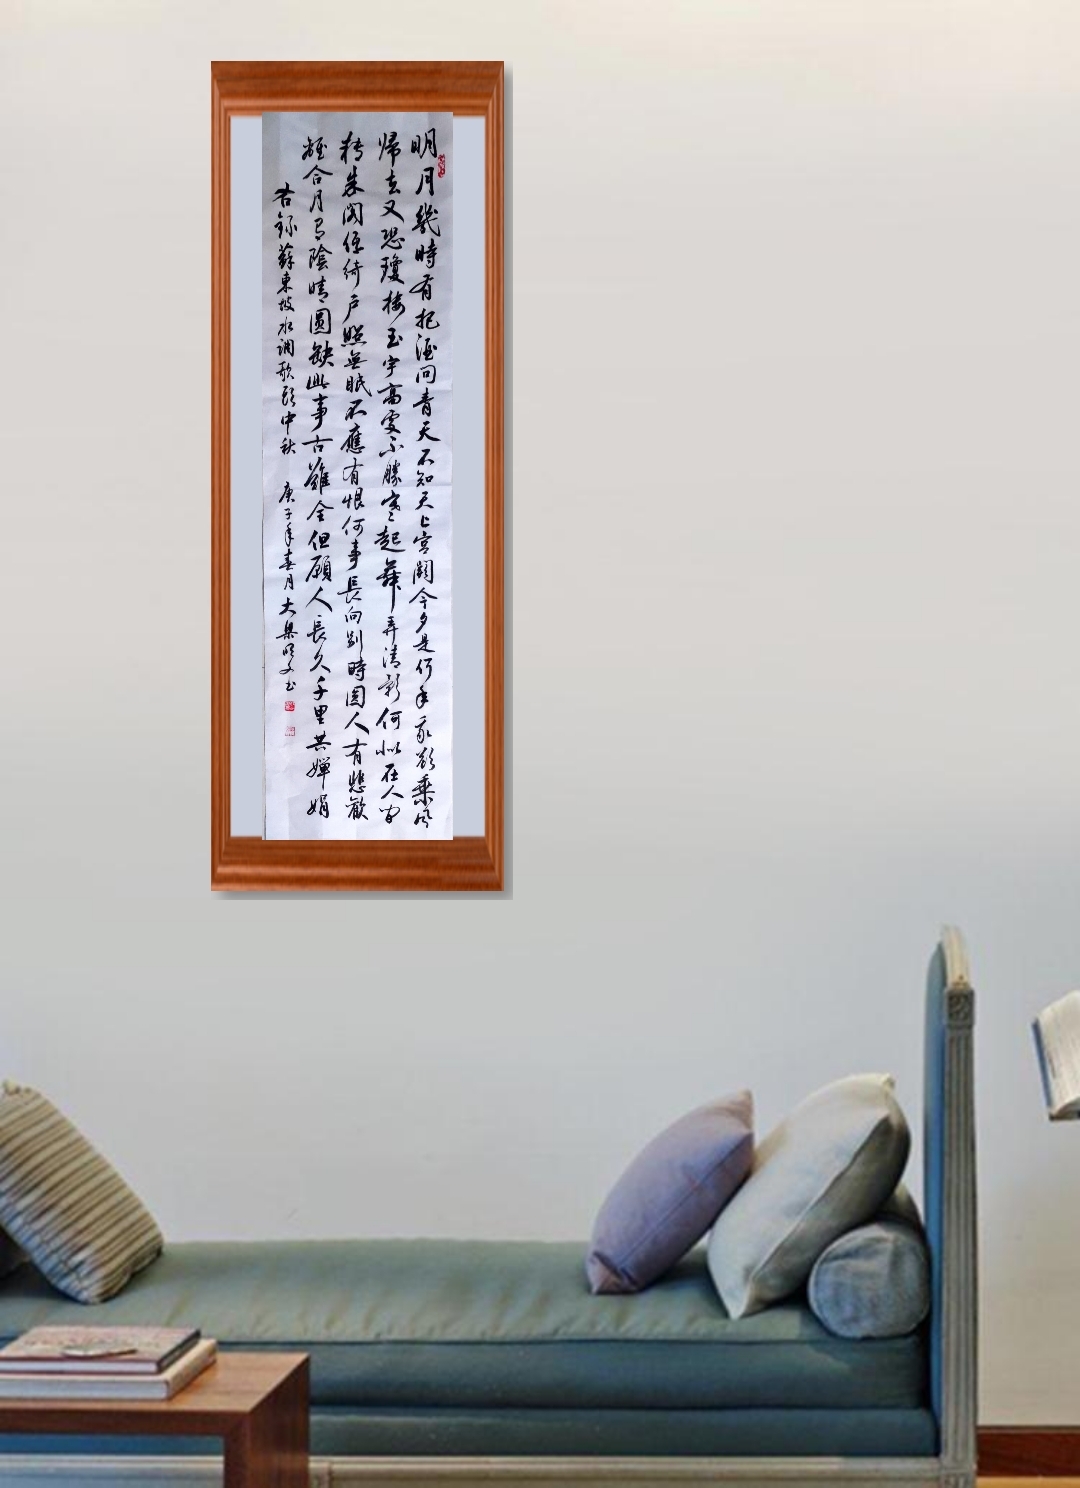 明月幾時有把酒問青天不知天上宮闕今夕是何年我欲乘風
歸去又恐瓊樓玉宇高處不勝寒起舞弄清影何似在人間
轉朱閣低綺戶照無眠不應有恨何事長向別時圓人有悲歡
離合月有陰晴圓缺此事古難全但願人長久千里共嬋娟
右錄蘇東坡水調歌頭中秋 庚子年春月